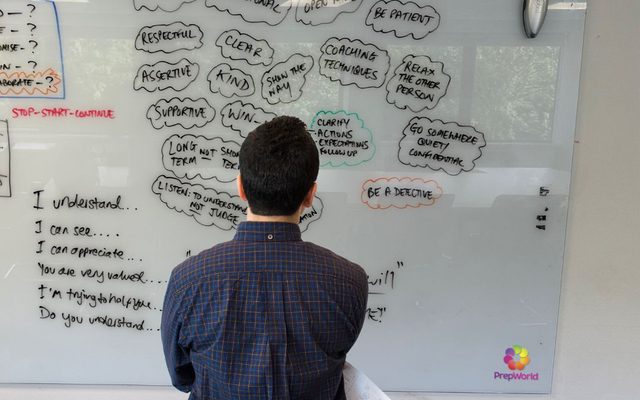 BE PATIENT
RESPECTFUL
CLEAR
COACHING
TECHNIQUES
ASSERTIVE
KIND
SHOW THE
WAY
RELAX
THE OTHER
PERSON
SUPPORTIVE
WIN-
CLARIFY
ACTIONS
EXPECTATIONS
FOLLOW UP
GO SOMEWHERE
QUIET/
CONFIDENTIAL
LONG NOT
TERM
LISTEN: TO UNDERSTAND
NOT JUDGE
BE A DETECTIVE
- ?
- ?
- ?
- ?
- ?
STOP-START-CONTINUE
I understand...
I can see.....
I can appreciate...
You are very valued....
I'm trying to help you...
Do you understand...
PrepWorld